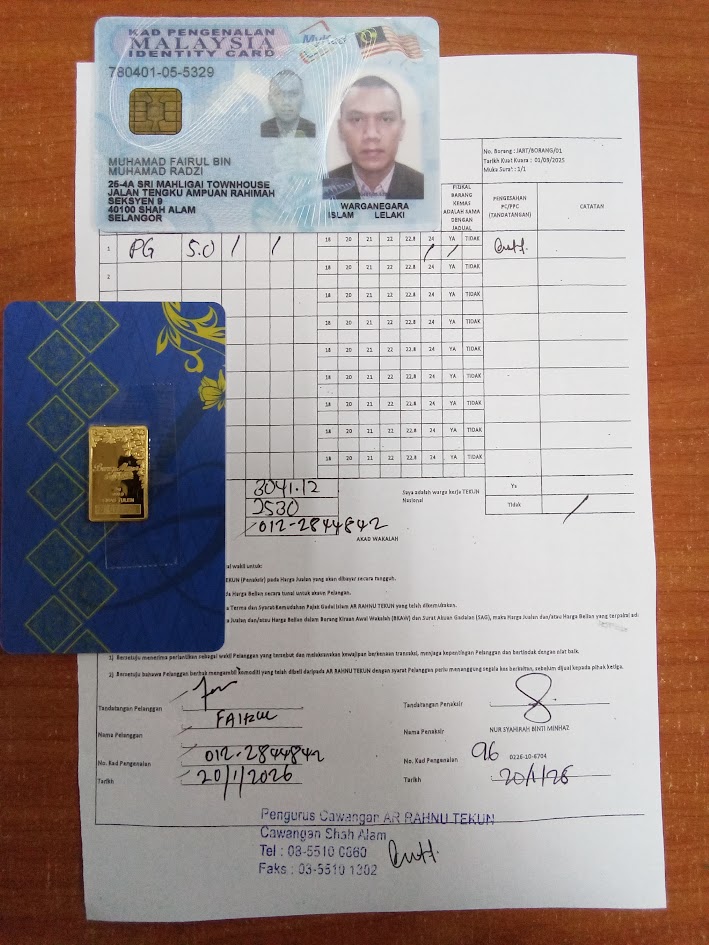 KAD PENGENALAN
MALAYSIA
IDENTITY CARD
MyKad
780401-05-5329
MUHAMAD FAIRUL BIN
MUHAMAD RADZI
25-4A SRI MAHLIGAI TOWNHOUSE
JALAN TENGKU AMPUAN RAHIMAH
SEKSYEN 9
40100 SHAH ALAM
SELANGOR
WARGANEGARA
ISLAM LELAKI
No. Borang : JART/BORANG/01
Tarikh Kuat Kuasa : 01/09/2025
Muka Surat : 1/1
FIZIKAL BARANG KEMAS ADALAH SAMA DENGAN JADUAL
PENGESAHAN PC/PPC (TANDATANGAN)
CATATAN
1 PG 5.0 / / 18 20 21 22 22.8 24 / YA / TIDAK
2 18 20 21 22 22.8 24 YA TIDAK
18 20 21 22 22.8 24 YA TIDAK
18 20 21 22 22.8 24 YA TIDAK
18 20 21 22 22.8 24 YA TIDAK
18 20 21 22 22.8 24 YA TIDAK
18 20 21 22 22.8 24 YA TIDAK
18 20 21 22 22.8 24 YA TIDAK
18 20 21 22 22.8 24 YA TIDAK
3041.12
2530
012-2844842
Saya adalah warga kerja TEKUN Nasional
Ya
Tidak /
AKAD WAKALAH
wakil untuk:
TEKUN (Penaksir) pada Harga Jualan yang akan dibayar secara tangguh.
Harga Belian secara tunai untuk akaun Pelanggan.
Terma dan Syarat Kemudahan Pajak Gadai Islam AR RAHNU TEKUN yang telah dikemukakan.
Jualan dan/atau Harga Belian dalam Borang Kiraan Awal Wakalah (BKAW) dan Surat Akuan Gadaian (SAG), maka Harga Jualan dan/atau Harga Belian yang terpakai
1) Bersetuju menerima perlantikan sebagai wakil Pelanggan yang tersebut dan melaksanakan kewajipan berkenaan transaksi, menjaga kepentingan Pelanggan dan bertindak dengan niat baik.
2) Bersetuju bahawa Pelanggan berhak mengambil komoditi yang telah dibeli daripada AR RAHNU TEKUN dengan syarat Pelanggan perlu menanggung segala kos berkaitan, sebelum dijual kepada pihak ketiga.
Tandatangan Pelanggan
Tandatangan Penaksir
Nama Pelanggan FAIRUL
Nama Penaksir NUR SYAHIRAH BINTI MINHAZ
No. Kad Pengenalan 012-2844842
No. Kad Pengenalan 96 0226-10-6704
Tarikh 20/1/2026
Tarikh 20/1/26
Pengurus Cawangan AR RAHNU TEKUN
Cawangan Shah Alam
Tel : 03-5510 0860
Faks : 03-5510 1302